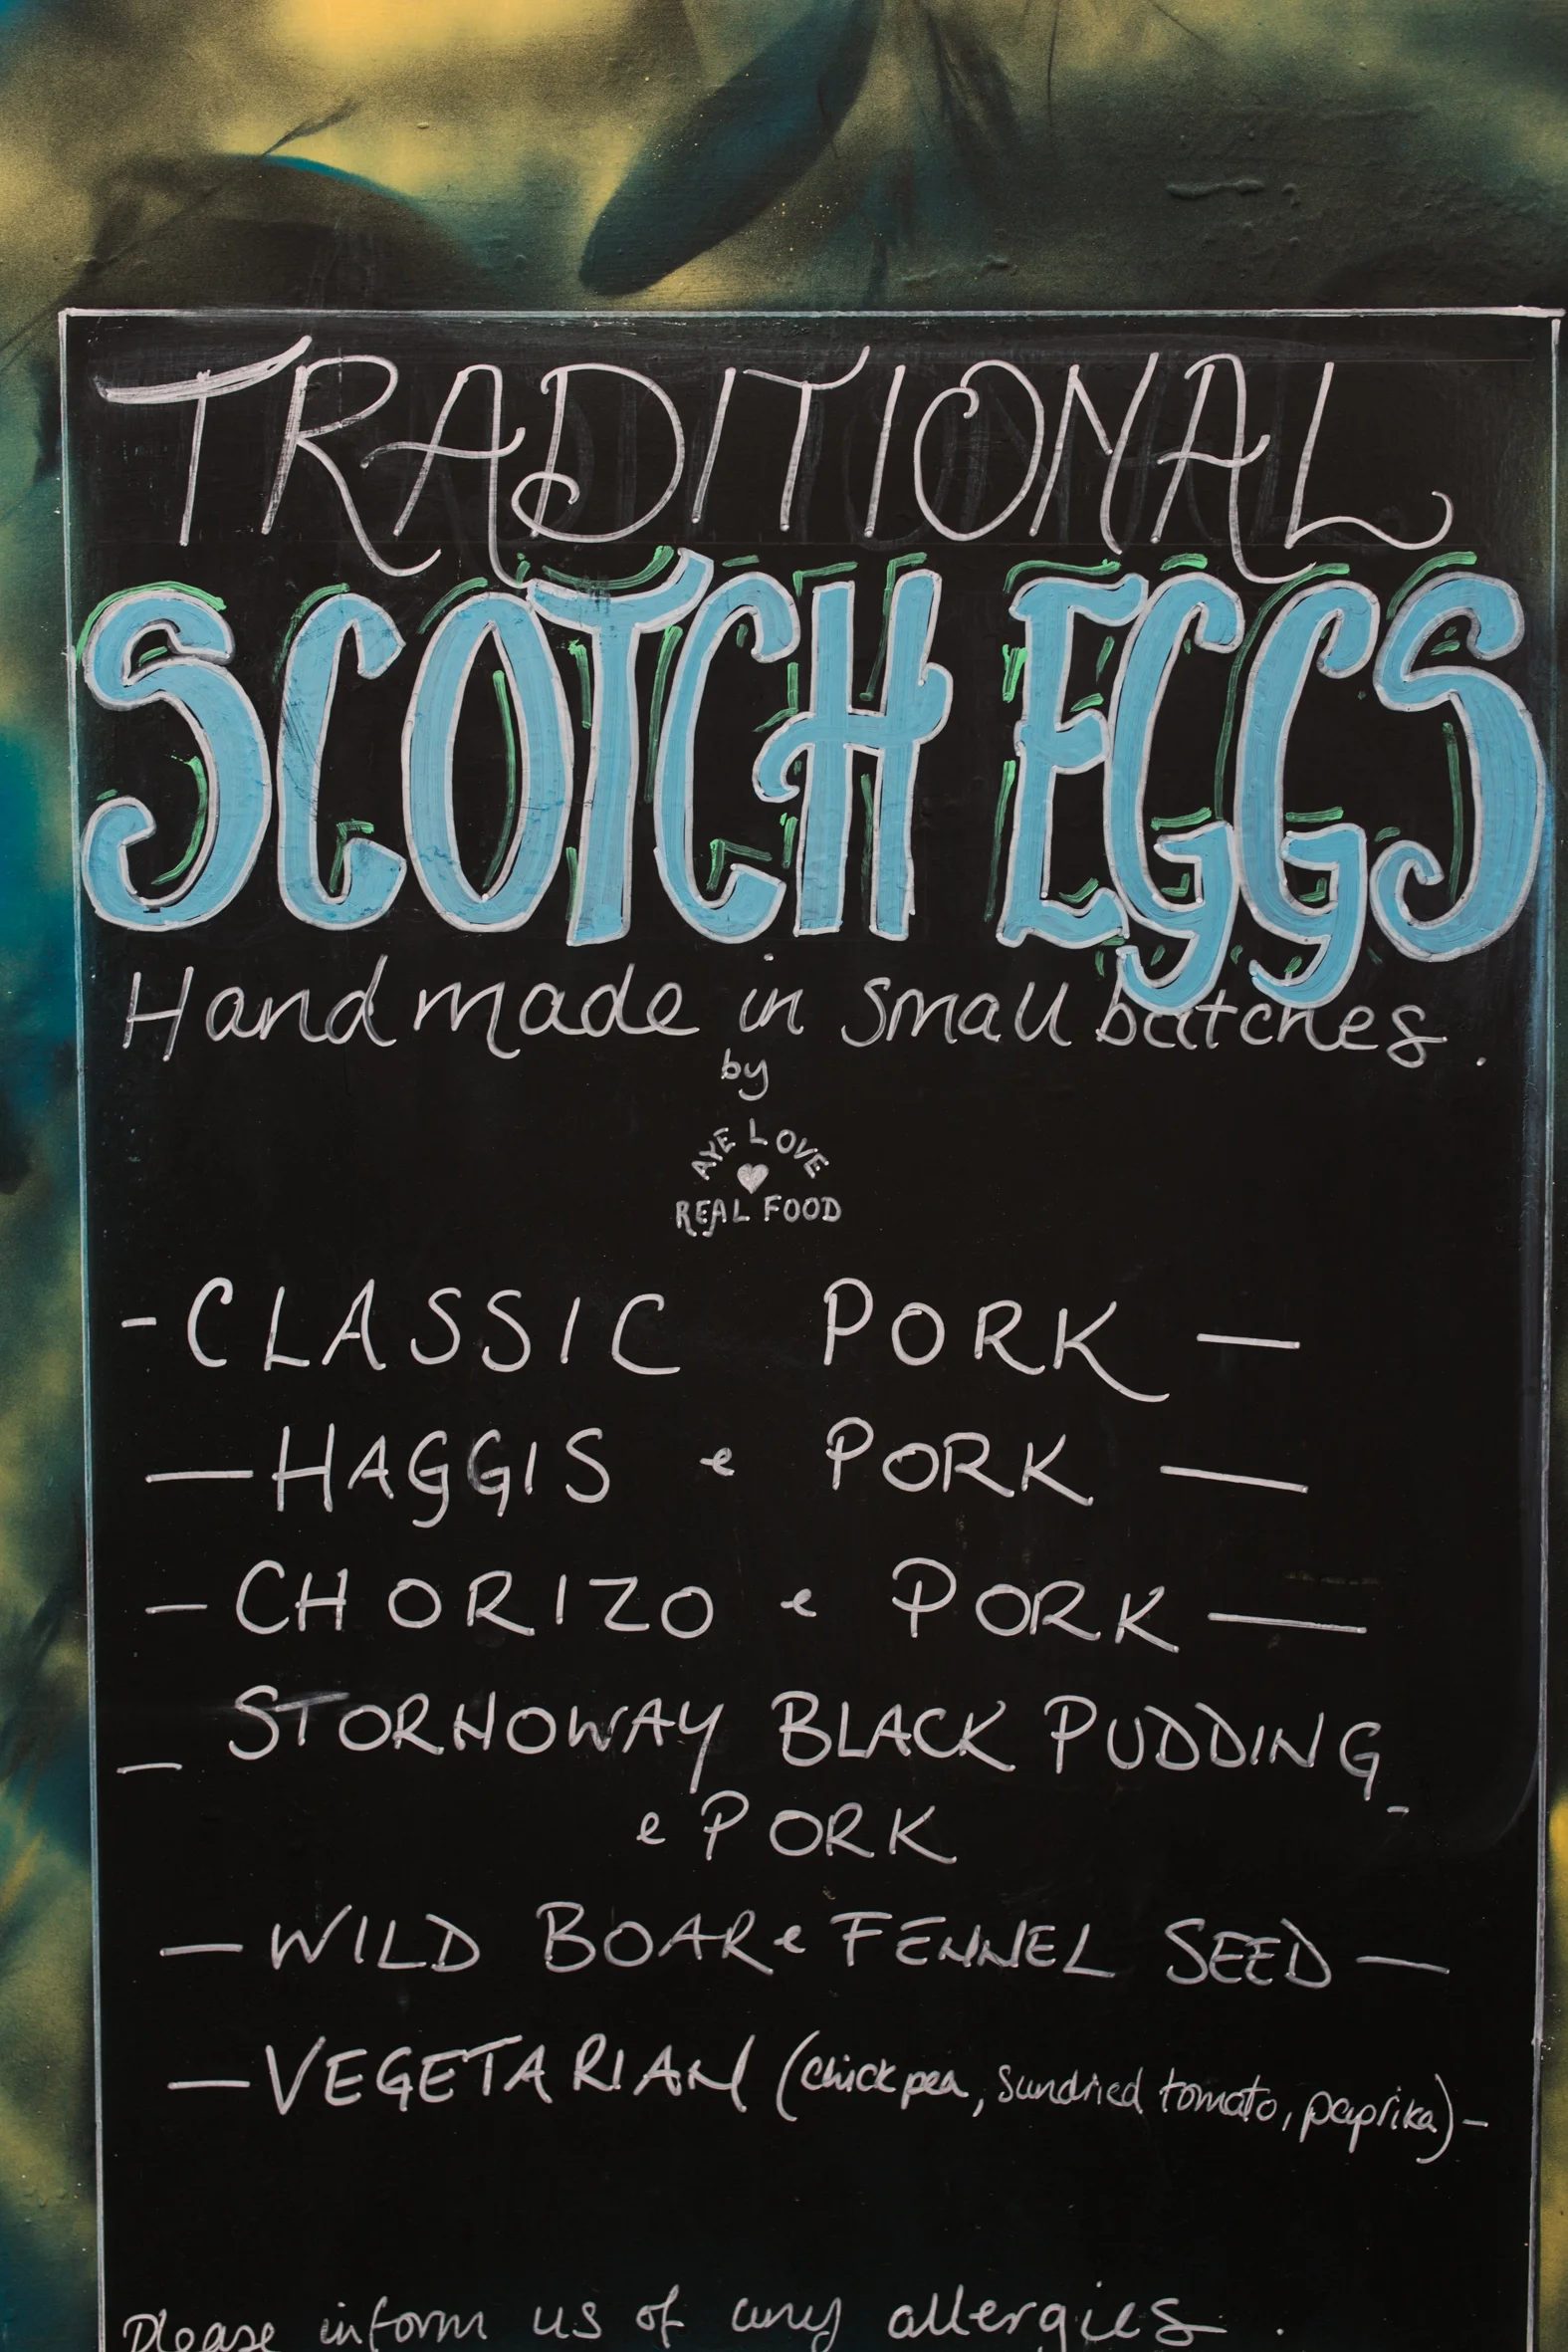 TRADITIONAL
SCOTCH EGGS
Handmade in small batches.
by
AYE LOVE
REAL FOOD
- CLASSIC PORK -
- HAGGIS & PORK -
- CHORIZO & PORK -
- STORNOWAY BLACK PUDDING -
& PORK
- WILD BOAR & FENNEL SEED -
- VEGETARIAN (chickpea, sundried tomato, paprika) -
Please inform us of any allergies.